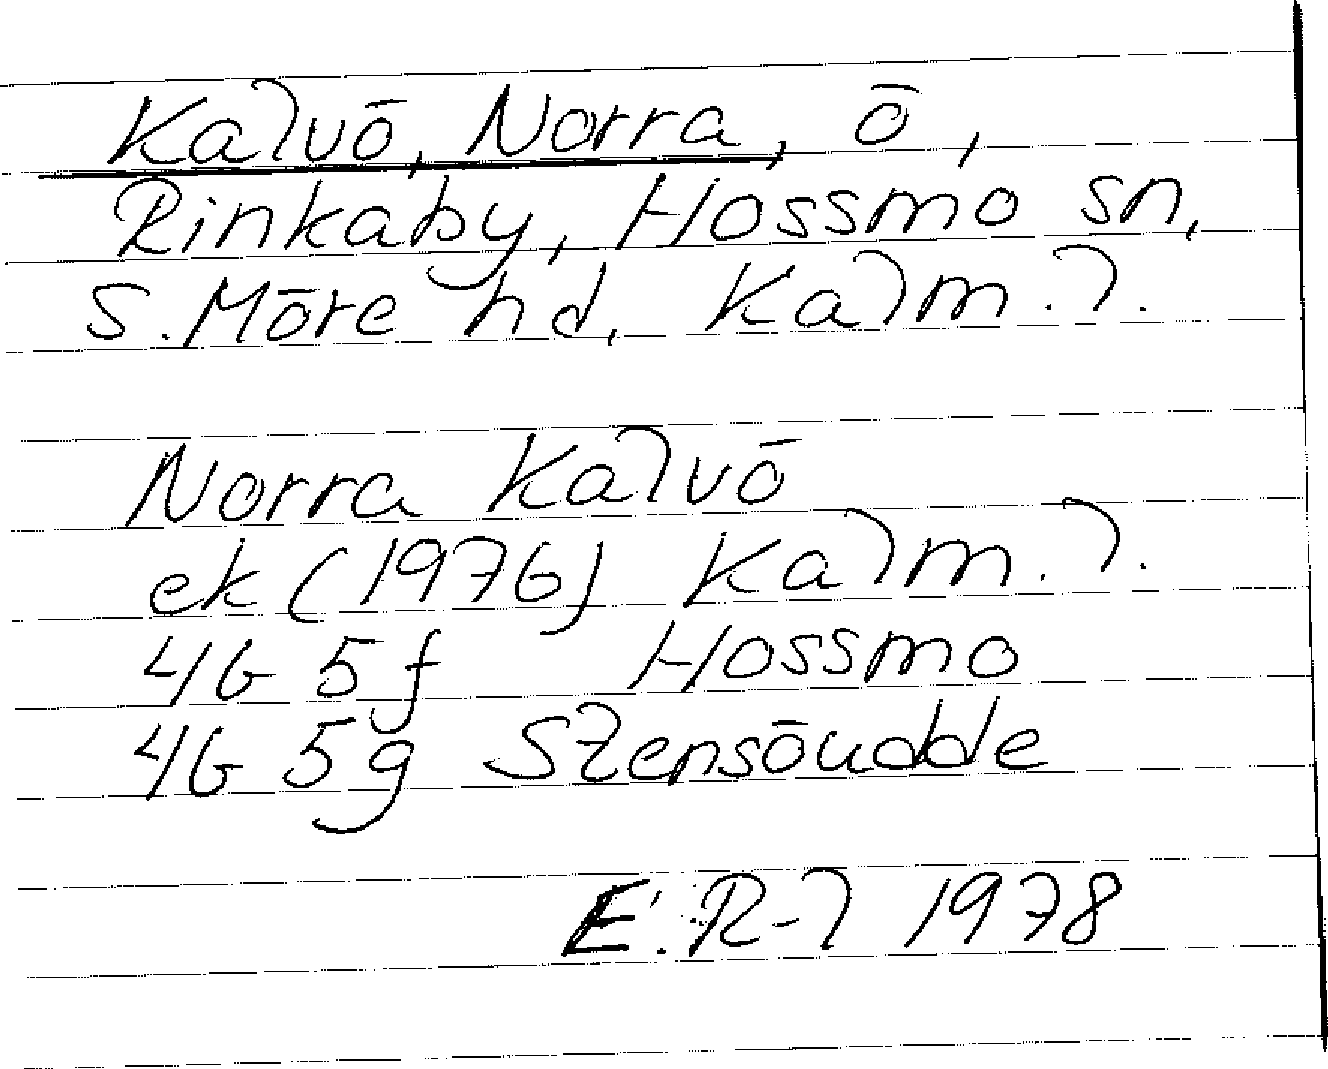 Kalvö, Norra, ö,
Rinkaby, Hossmo sn,
S. Möre hd. Kalm. l.
Norra Kalvö
ek (1976) Kalm. l.
4G 5f Hossmo
4G 5g Stensöudde
E. R-l 1978